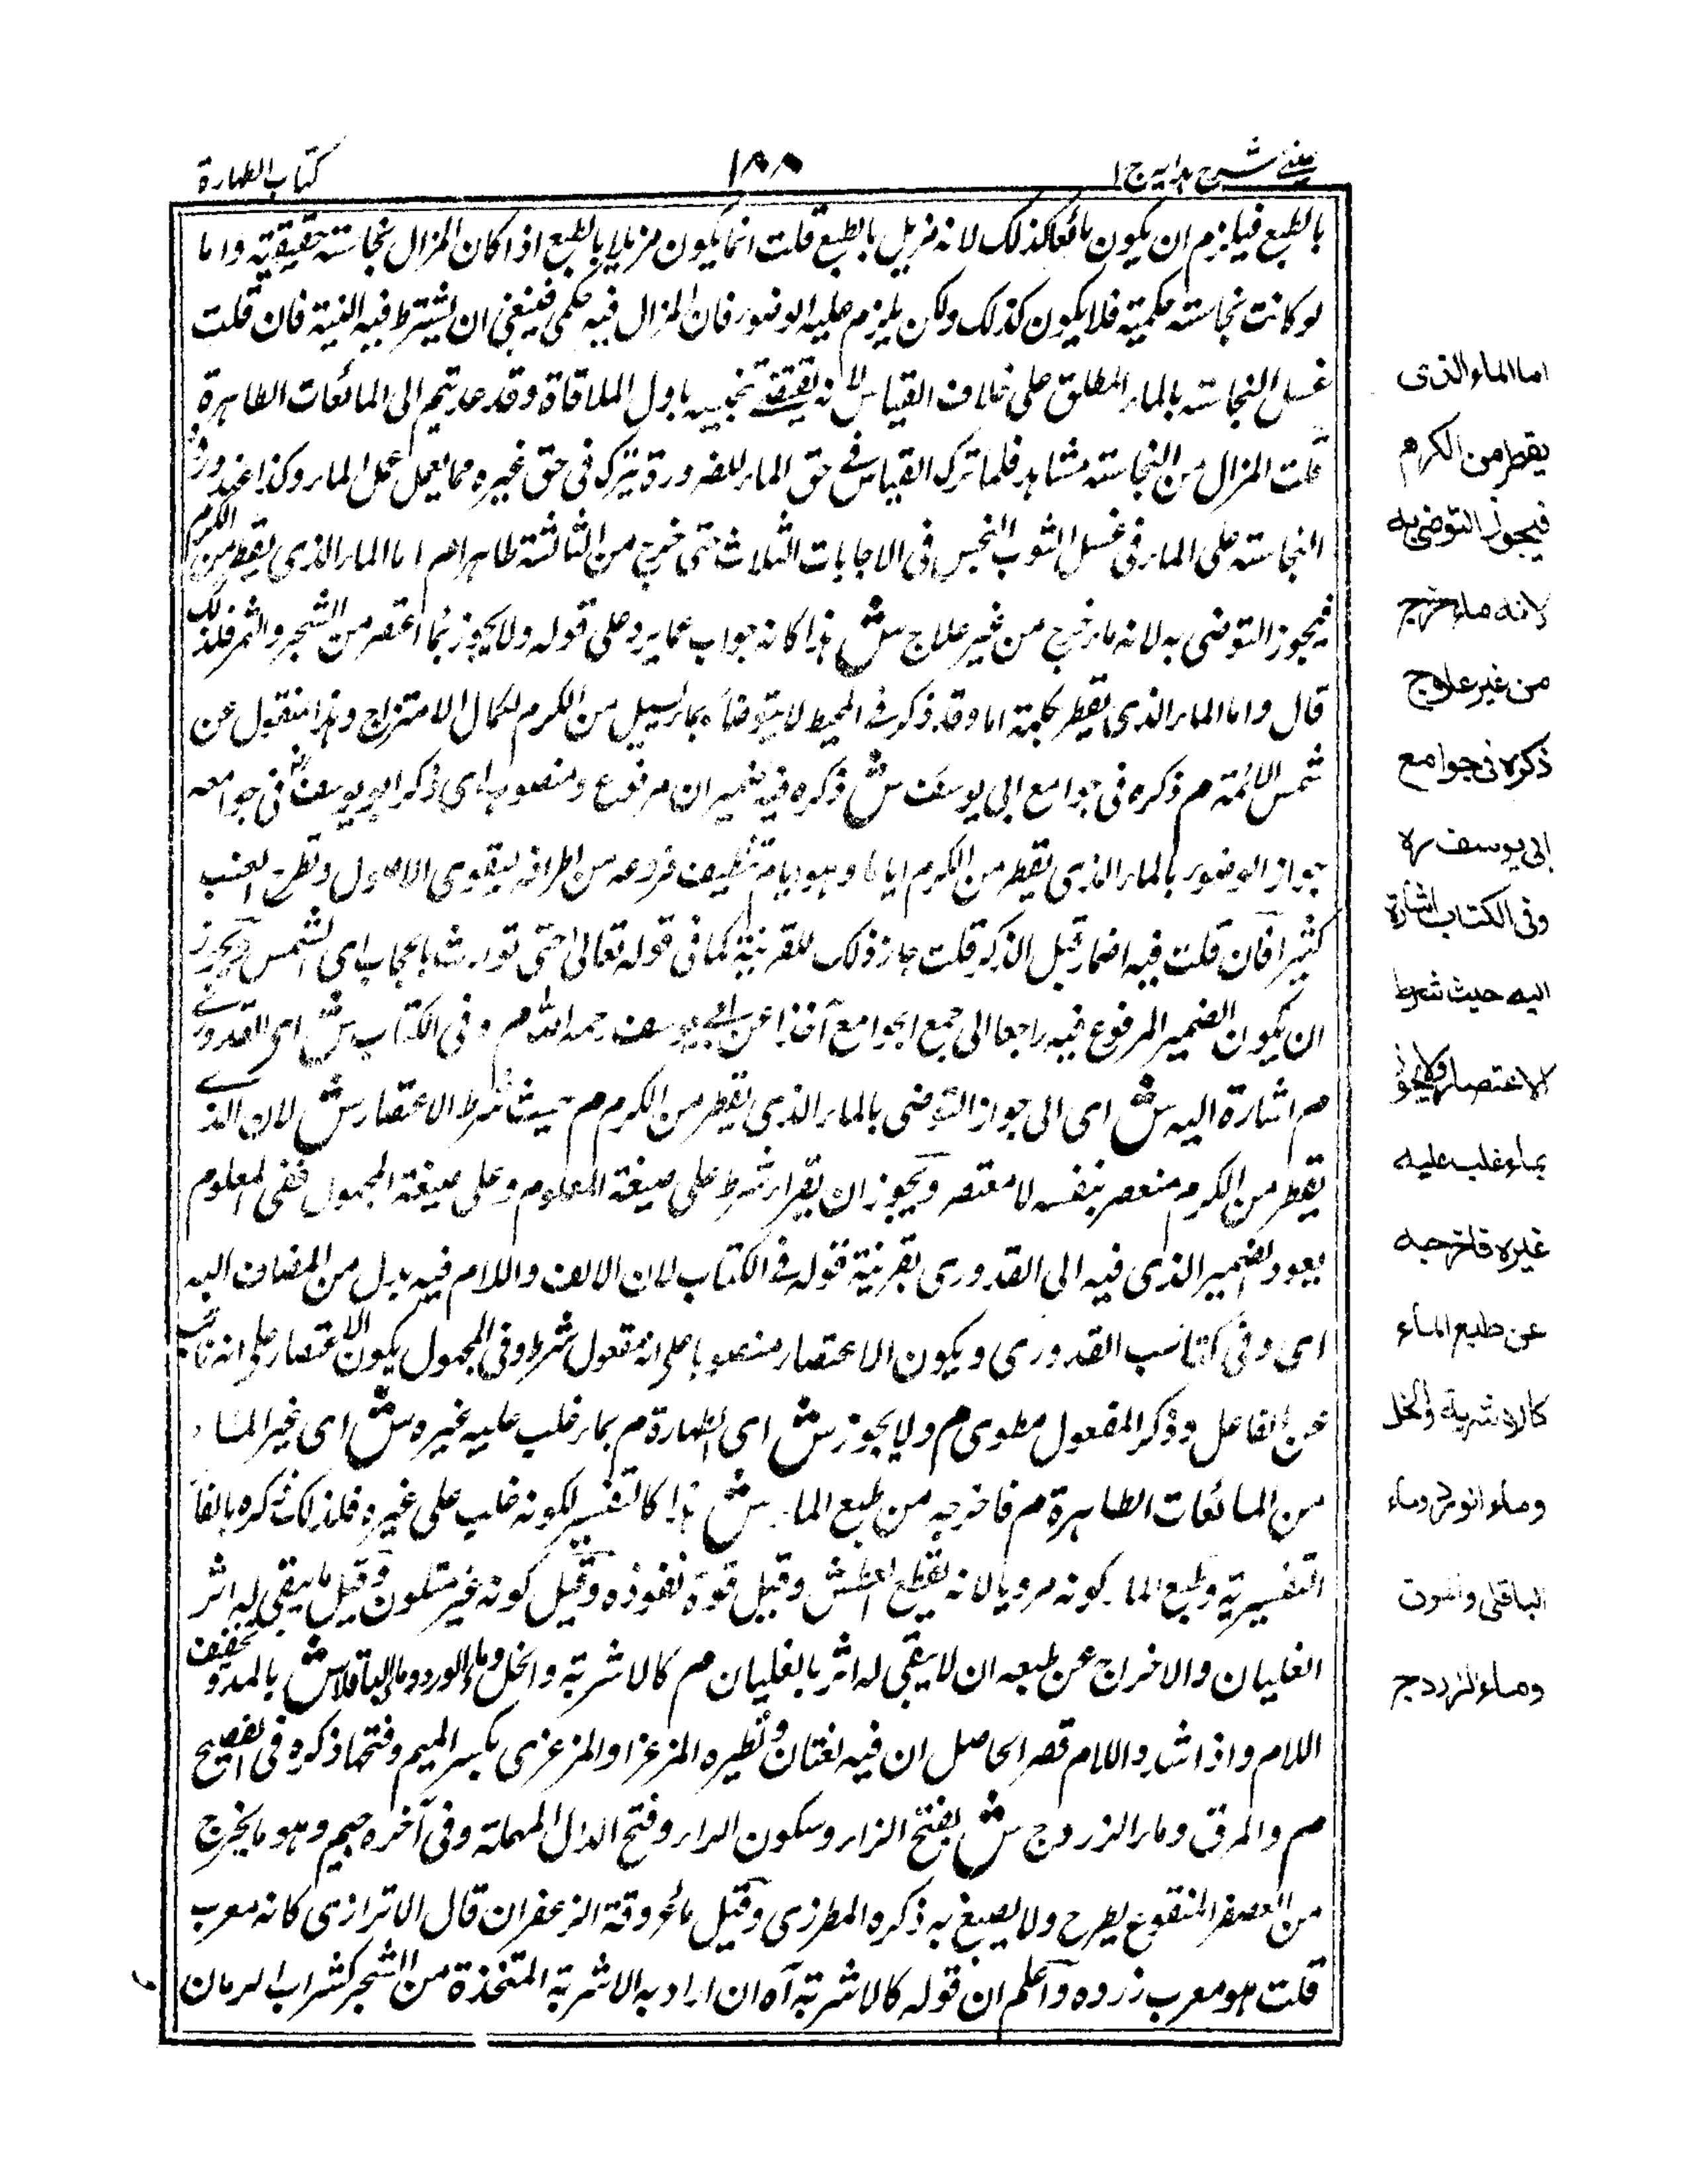 عینی شرح هدایہ ج ۱
۱۸۸
كتاب الطهارة
بالطبع فيلزم ان يكون مائعا كذلك لانه مزيل بالطبع قلت انما يكون مزيلا بالطبع اذا كان المزال نجاسته حقيقية واما
لو كانت نجاسته حكمية فلا يكون كذلك ولكن يلزم عليه الوضوء فان المزال فيه حكمى فينبغى ان يشترط فيه النية فان قلت
غسل النجاسته بالماء المطلق على خلاف القياس لانه يقتضى تنجيسه باول الملاقاة وقد عديتم الى المائعات الطاهرة
قلت المزال من النجاسته مشاهد فلما ترك القياس فى حق الماء للضرورة يترك فى حق غيره مما يعمل عمل الماء وكذا عند ورود
النجاسته على الماء فى غسل الثوب النجس فى الاجابات الثلاث حتى خرج من الثالثة طاهرا هم اما الماء الذى يقطر من الكرم
فيجوز التوضى به لانه ماء خرج من غير علاج ش هذا كانه جواب عما يرد على قوله ولا يجوز بما اعتصر من الشجر والثمر فلذلك
قال واما الماء الذى يقطر بكلمة اما وقد ذكر فى المحيط لا يتوضأ بماء يسيل من الكرم لكمال الامتزاج وهذا منقول عن
شمس الائمة م ذكره فى جوامع ابى يوسف ش ذكره فيه ضميران مرفوع ومنصوب اى ذكر ابو يوسف فى جوامعه
جواز الوضوء بالماء الذى يقطر من الكرم ايام تنظيف فروعه من اطرافه ليقوى الاصول وتطرح العنب
كثيرا فان قلت فيه اضمار قبل الذكر قلت جاز ذلك للقرينة كما فى قوله تعالى حتى توارت بالحجاب اى الشمس ويجوز
ان يكون الضمير المرفوع فيه راجعا الى جمع الجوامع آخذا عن ابى يوسف رحمه الله م وفى الكتاب ش اى القدورى
م اشارة اليه ش اى الى جواز التوضى بالماء الذى يقطر من الكرم م حيث شرط الاعتصار ش لان الذى
يقطر من الكرم منعصر بنفسه لا معتصر ويجوز ان يقرا شرط على صيغة المعلوم وعلى صيغة المجهول ففى المعلوم
يعود الضمير الذى فيه الى القدورى بقرينة قوله فى الكتاب لان الالف واللام فيه بدل من المضاف اليه
اى وفى كتاب القدورى ويكون الاعتصار منصوبا على انه مفعول شرط وفى المجهول يكون الاعتصار على انه نائب
عن الفاعل وذكر المفعول مطوى م ولا يجوز ش اى الطهارة م بماء غلب عليه غيره ش اى غير الماء
من المائعات الطاهرة م فاخرجه من طبع الماء ش هذا كالتفسير لكونه غلب على غيره فلذلك ذكره بالفاء
التفسيرية وطبع الماء كونه مرويا لانه يقطع العطش وقيل قوة نفوذه وقيل كونه غير متلون وقيل ما يبقى له اثر
الغليان والاخراج عن طبعه ان لا يبقى له اثر بالغليان م كالاشربة والخل وماء الورد وماء الباقلا ش بالمد وتخفيف
اللام واذا شدد اللام قصر الحاصل ان فيه لغتان ونظيره المرعزا والمرعزى بكسر الميم وفتحها ذكره فى الفصيح
م والمرق وماء الزردج ش بفتح الزاء وسكون الراء وفتح الدال المهملة وفى آخره جيم وهو ما يخرج
من العصفر المنقوع يطرح ولا يصبغ به ذكره المطرزى وقيل ماء عروقة الزعفران قال الاترازى كانه معرب
قلت هو معرب زرده وآعلم ان قوله كالاشربة آه ان اراد به الاشربة المتخذة من الشجر كشراب الرمان
اما الماء الذى
يقطر من الكرم
فيجوز التوضى به
لانه ماء خرج
من غير علاج
ذكره فى جوامع
ابى يوسف رہ
وفى الكتاب اشارة
اليه حيث شرط
الاعتصار ولا يجوز
بماء غلب عليه
غيره فاخرجه
عن طبع الماء
كالاشربة والخل
وماء الورد وماء
الباقلى والمرق
وماء الزردج